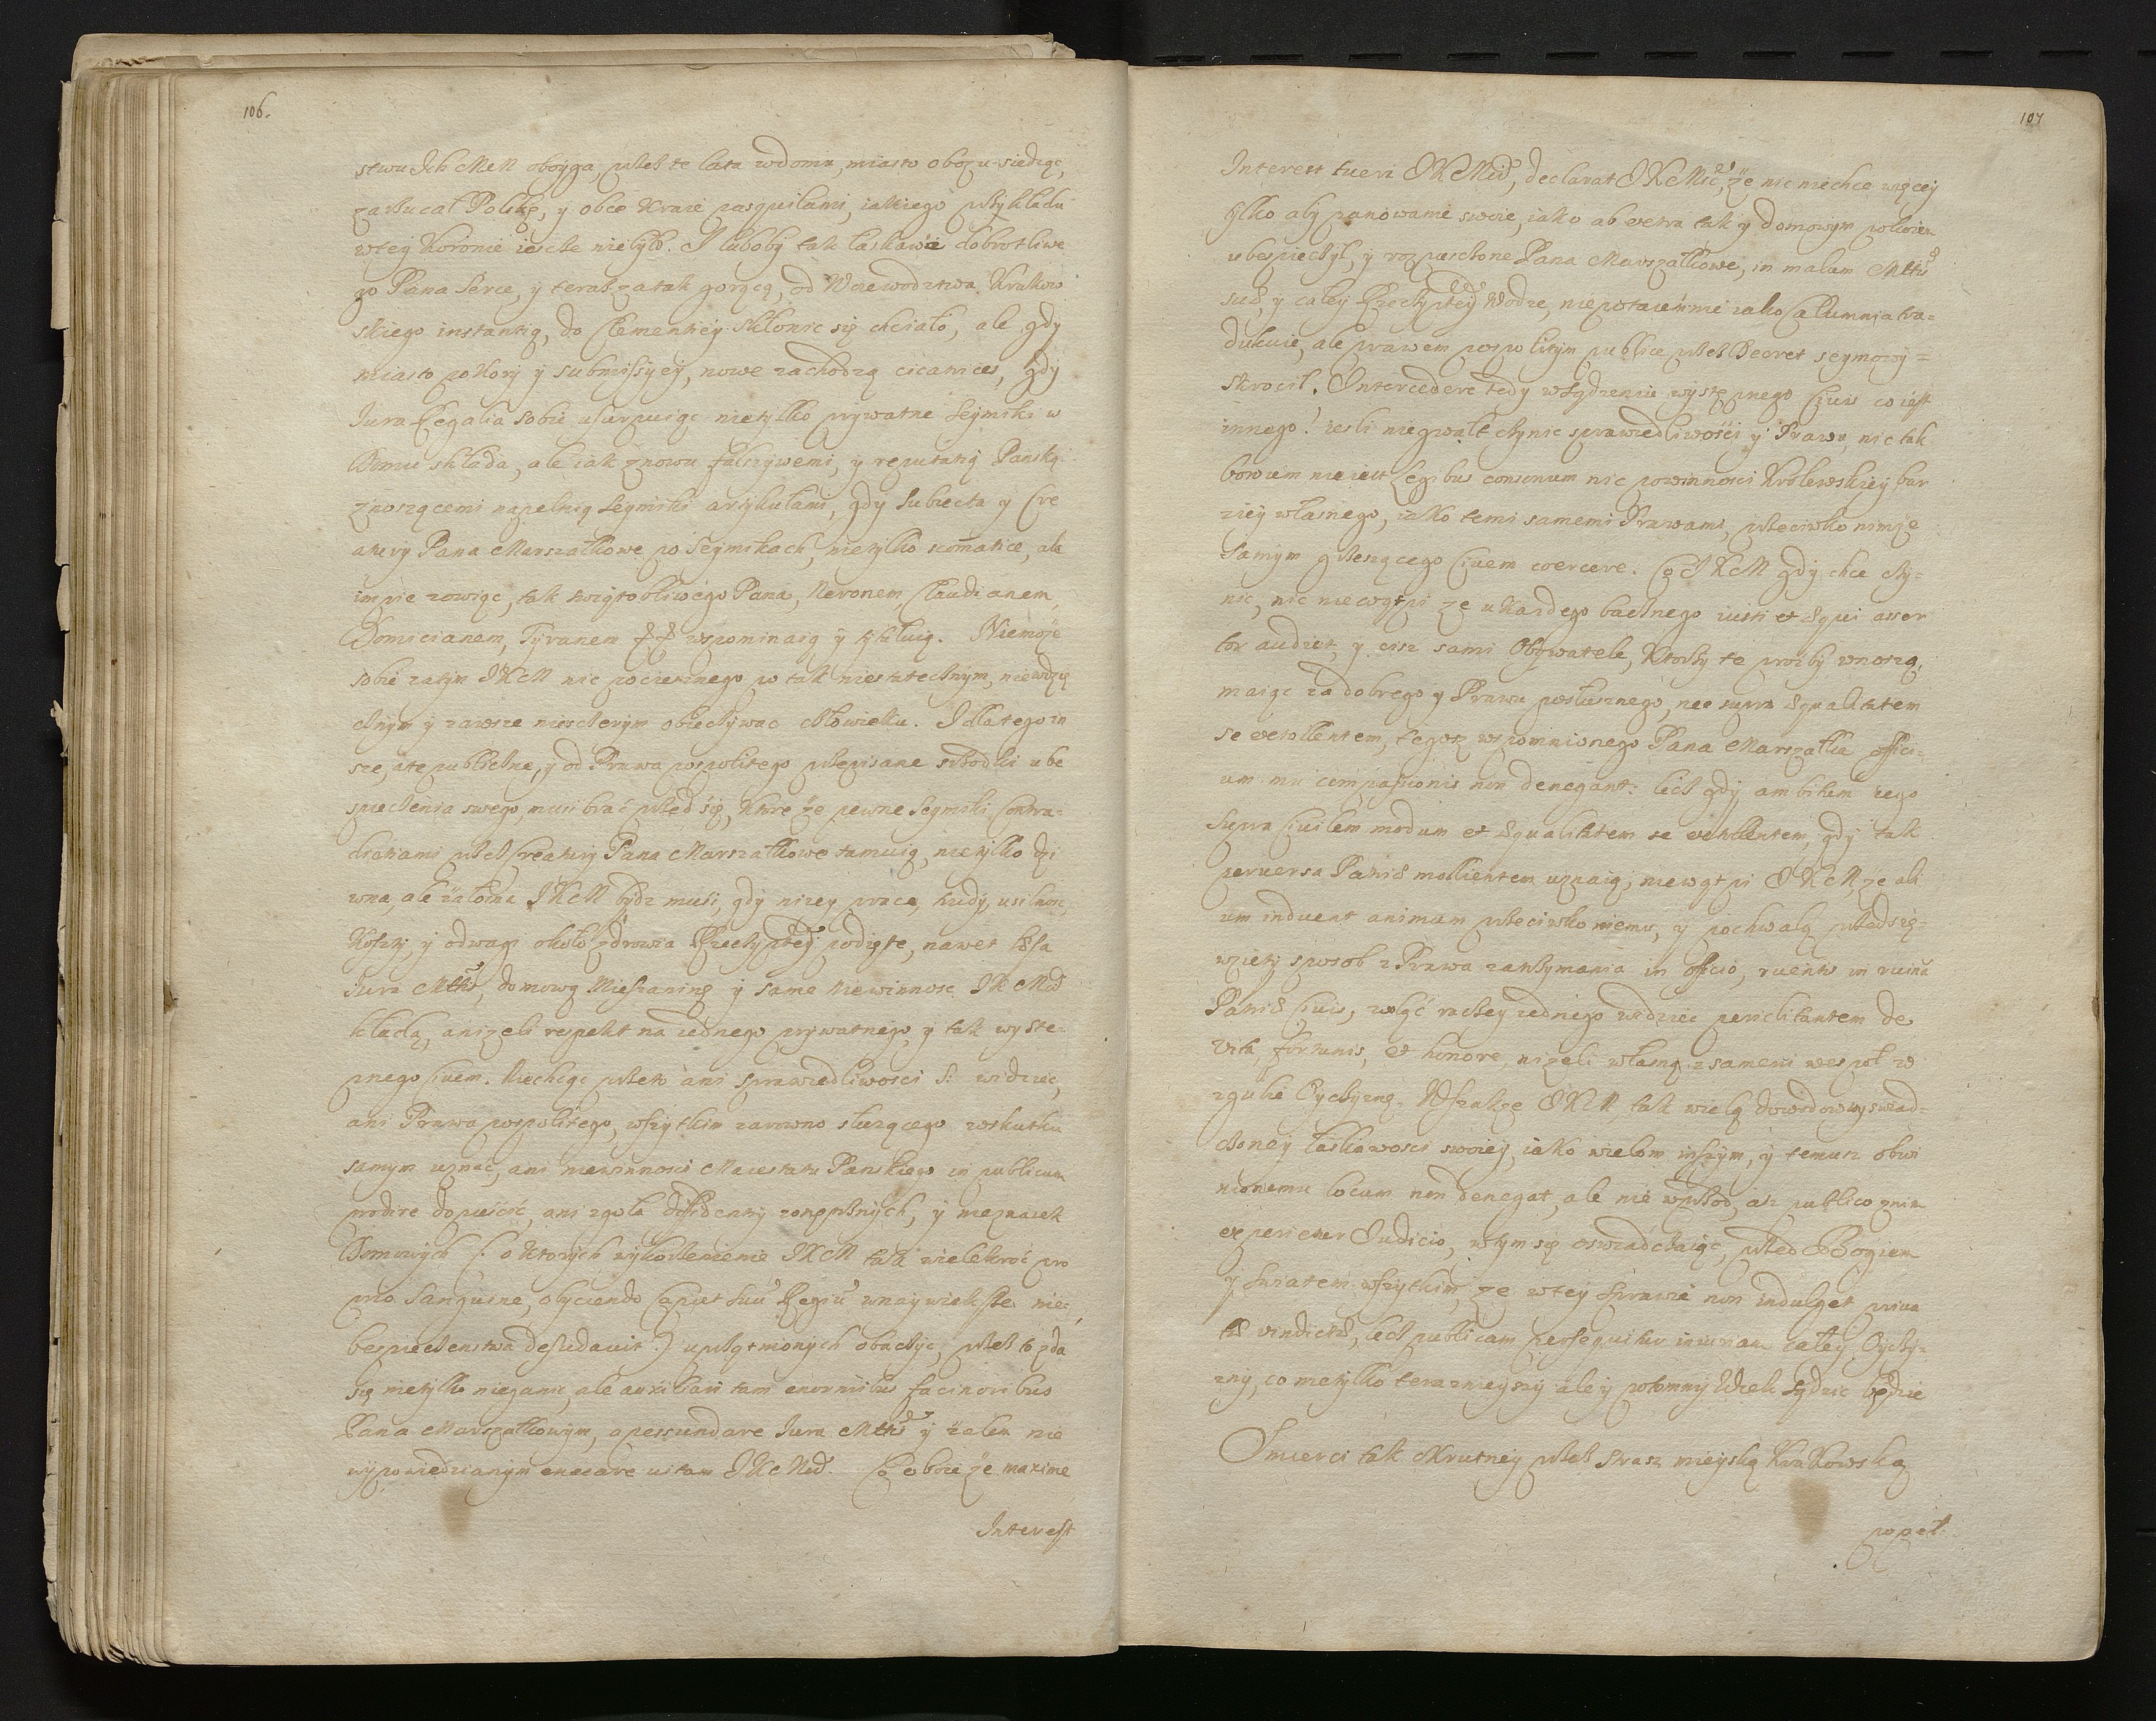 106.
stwu Ich MeM oboyga, przes te lata w domu, miasto obozu siedząc,
zarzucał Polskę, y obce Kraie pasquilami, iakiego przykładu
w tey Koronie ieszcze nie było. I luboby tak łaskawe dobrotliwe
go Pana Serce, y teraz za tak gorącą, od Woiewodztwa Krakow
skiego instantią, do Clementiey skłonic się chciało, ale gdy
miasto pokory y submissyey, nowe zachodzą cicatrices, gdy
Iura Regalia sobie usurpuiąc nietylko prywatne Seymiki w
Domu składa, ale iak znowu fałszywemi, y reputatią Panską
znoszącemi napełnia Seymiki artykułami, gdy Subiecta y Cre
atury Pana Marszałkowe po Seymikach, nietylko scomatice, ale
impie zowiąc, tak swiątobliwego Pana, Neronem, Claudianem,
Domicianem, Tyranem wspominaią y tytułuią. Niemoże
sobie zatym IKM nic pociesznego po tak niestatecznym, niewdzię
cznym y zawsze nieszczerym obiecywac człowieku. I dlatego in
sze, a te publiczne, y od Prawa pospolitego przepisane srzodki ube
spieczenia swego musi brać przed się, ktore że pewne Seymiki Contra-
dictiami przes Creatury Pana Marszałkowe tamuią, nietylko dzi
wna, ale żałosna IKM bydz musi, gdy niżey prace, trudy, usilnosc,
Koszty, y odwagi około zdrowia Rzeczyptey podięte, nawet ipsa
Iura Mttis, domową Mieszaninę y same Niewinnosc IKMci
kładą, aniżeli respekt na iednego prywatnego, y tak wyste-
pnego Civem. Niechcąc przeto ani Sprawiedliwosci S: widziec,
ani Prawa pospolitego, wszytkim zarowno służącego w skutku
samym uznać, ani niewinnosci Maiestatu Panskiego in publicum
prodire dopuścić, ani zgoła diffidentiy zewnętrznych, y nieznasek
Domowych (: o ktorych wykorzenienie IKM tak wielekroć pro
prio Sanguine, obiiciendo Caput suum Regium w naywieksze nie-
bespieczenstwa desudavit :) uprzątnionych obaczyc, przes to zda
się nietylko nieganic, ale auxiliari tam enormibus facinoribus
Pana Marszałkowym, a pessundare Iura Mttis y żalem nie
wypowiedzianym enecare vitam IKMci. Co oboie że maxime
Interest
107
Interest tueri IKMci, declarat IKMść, że nic niechce więcey
tylko aby panowanie swoie, iako ab extra tak y domowym pokoiem
ubespieczył, y rozpuszczone Pana Marszałkowe, in malum Mttis
suæ, y całey Rzeczyptey Wodze, niepotaiemnie iako Calumnia tra-
dukuie, ale prawem pospolitym publice przes Decret Seymowy =
skrocił. Intercedere tedy w sądzeniu występnego Civis co iest
innego? iesli nie gwałt czynic sprawiedliwości y Prawu, nic tak
bowiem nie iest Legibus consonum nic powinnosci Krolewskiey bar
ziey własnego, iako temi samemi Prawami, przeciwko nimże
samym grzeszącego Civem coercere. Co IKM gdy chce czy-
nic, nic niewątpi że u każdego bacznego iusti et æqui asser
tor audiet, y cisz sami Obywatele, ktorzy te prozby wnoszą,
maiąc za dobrego y Prawu posłusznego, nec supra æqualitatem
se extollentem, tegosz wspomnionego Pana Marszałka offici-
um mu compassionis non denegant: lecz gdy ambitum iego
supra Civilem modum et æqualitatem se extollentem, gdy tak
perversa Patriæ molientem uznaią; niewątpi IKM że ali
um induent animum przeciwko niemu, y pochwalą przedsię-
wzięty sposob z Prawa zatrzymania in officio, ruentis in ruinā
Patriæ Civis, woląć raczey iednego widziec periclitantem de
Vita, fortunis, et honore, niżeli własną z samemi wespoł w
zgubie Oyczyznę. Wszakże IKM tak wielą dowodow wyswiad-
czoney łaskawosci swoiey, iako wielom inszym, y temusz obwi
nionemu locum non denegat, ale nie wprzod, asz publico znim
experietur Iudicio, w tym się oswiadczaiąc, przed Bogiem
y światem wszytkim, że w tey Sprawie non indulget priva
tæ vindictæ, lecz publicam persequitur iniuriam całey Oyczy-
zny, co nietylko terazniejszy ale y potomny Wiek sądzic będzie
Smierci tak okrutney przes strasz mieyską Krakowską
popeł